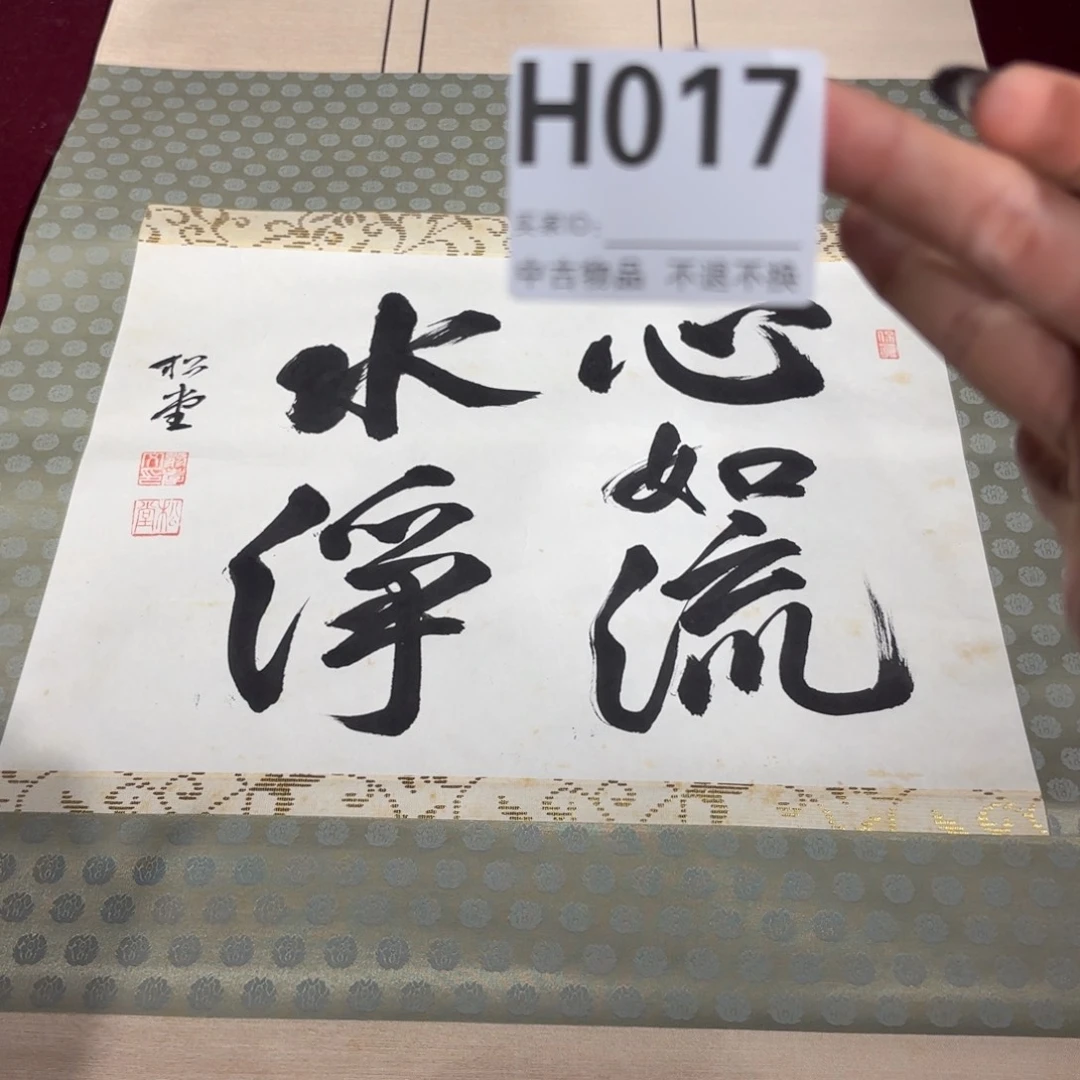 H017
买家ID:
中古物品 不退不换
心如流
水淨
松堂
松堂